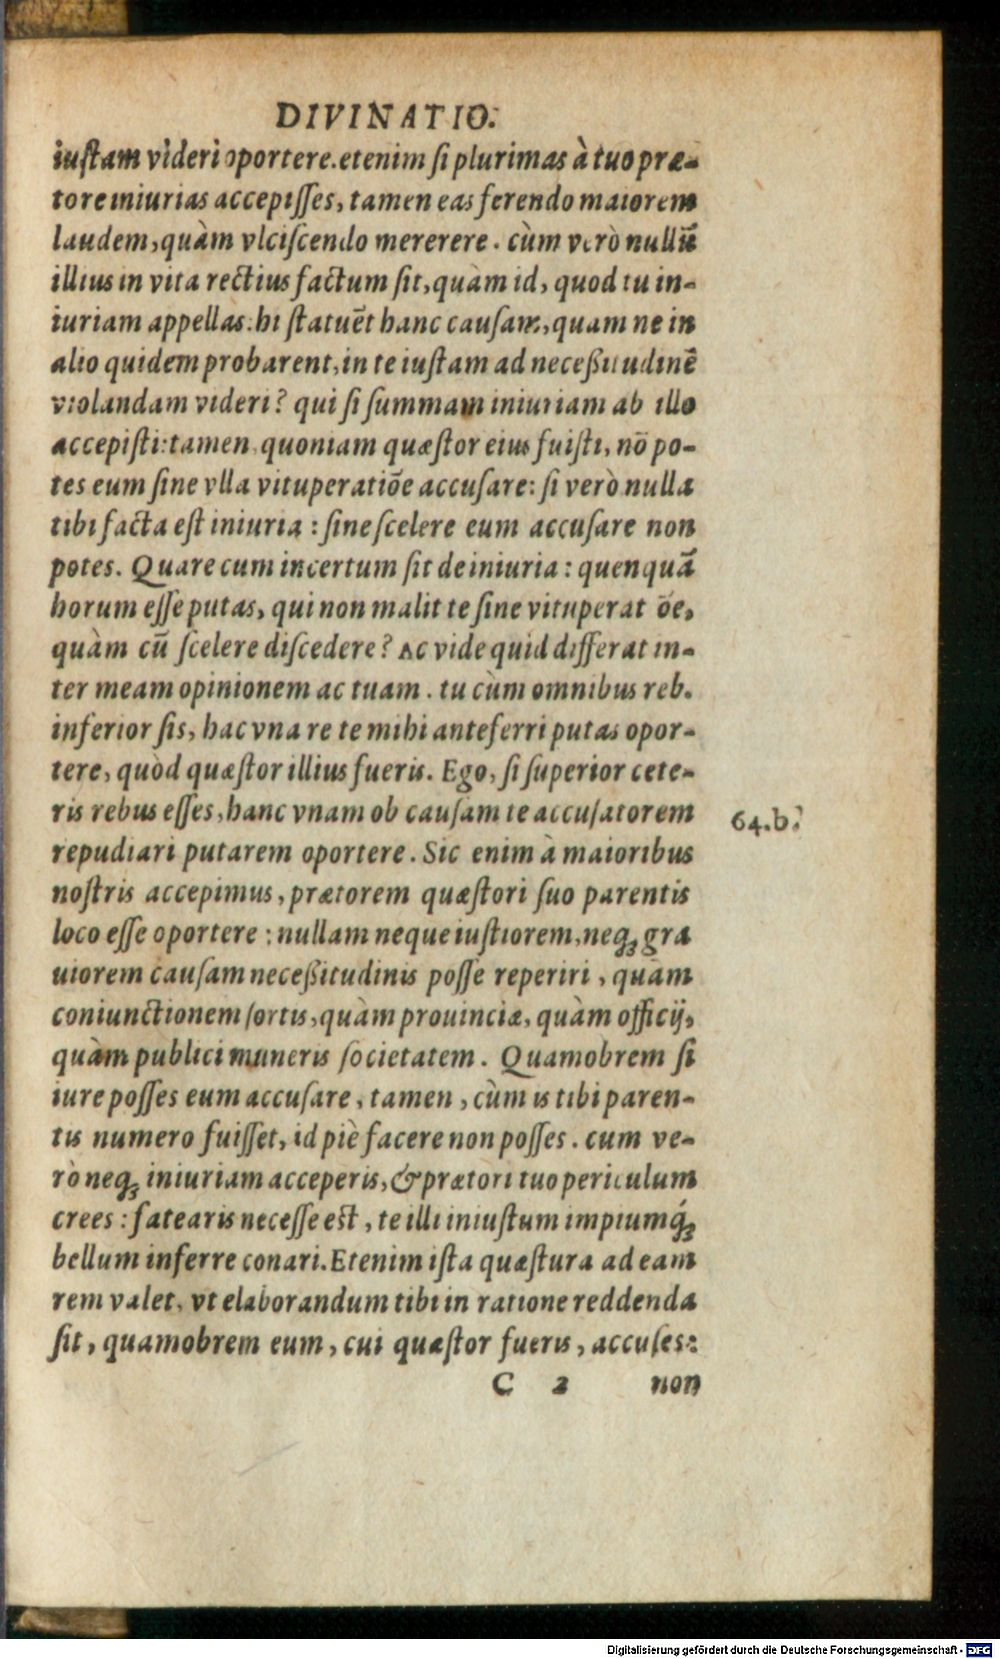 DIVINATIO.
iustam videri oportere. etenim si plurimas à tuo præ-
tore iniurias accepisses, tamen eas ferendo maiorem
laudem, quàm vlciscendo mererere. cùm verò nullũ
illius in vita rectius factum sit, quàm id, quod tu in-
iuriam appellas: hi statuẽt hanc causam, quam ne in
alio quidem probarent, in te iustam ad neceßitudinẽ
violandam videri? qui si summam iniuriam ab illo
accepisti: tamen quoniam quæstor eius fuisti, nõ po-
tes eum sine vlla vituperatiõe accusare: si verò nulla
tibi facta est iniuria: sine scelere eum accusare non
potes. Quare cum incertum sit de iniuria: quenquã
horum esse putas, qui non malit te sine vituperat õe,
quàm cũ scelere discedere? Ac vide quid differat in-
ter meam opinionem ac tuam. tu cùm omnibus reb.
inferior sis, hac vna re te mihi anteferri putas opor-
tere, quòd quæstor illius fueris. Ego, si superior cete-
ris rebus esses, hanc vnam ob causam te accusatorem
64.b.
repudiari putarem oportere. Sic enim à maioribus
nostris accepimus, prætorem quæstori suo parentis
loco esse oportere: nullam neque iustiorem, neq; gra
uiorem causam neceßitudinis posse reperiri, quàm
coniunctionem sortis, quàm prouinciæ, quàm officij,
quàm publici muneris societatem. Quamobrem si
iure posses eum accusare, tamen, cùm is tibi paren-
tis numero fuisset, id piè facere non posses. cum ve-
rò neq; iniuriam acceperis, & prætori tuo periculum
crees: fatearis necesse est, te illi iniustum impiumq́;
bellum inferre conari. Etenim ista quæstura ad eam
rem valet, vt elaborandum tibi in ratione reddenda
sit, quamobrem eum, cui quæstor fueris, accuses:
C 2 non
Digitalisierung gefördert durch die Deutsche Forschungsgemeinschaft - DFG